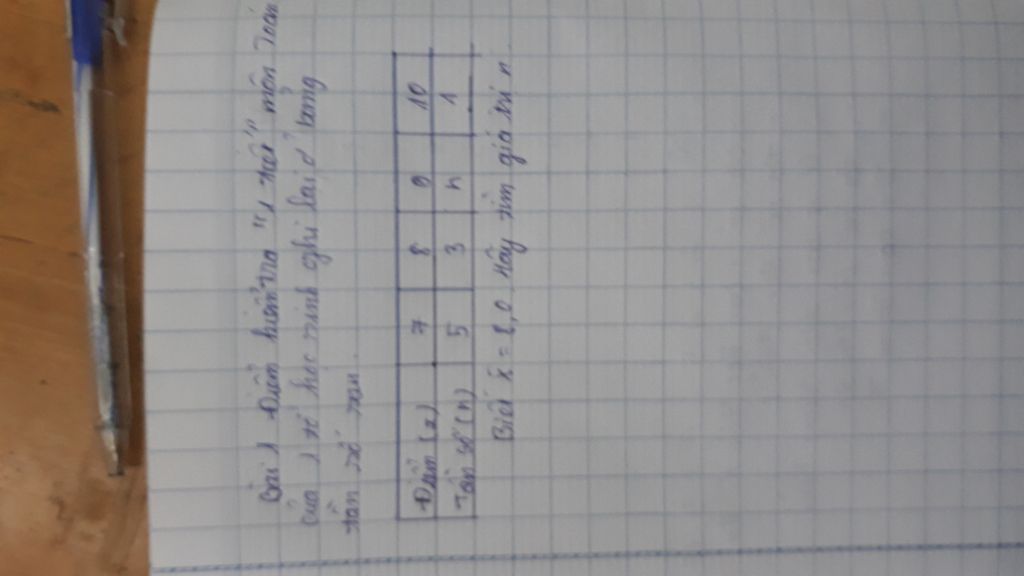 Bài 1 Điểm kiểm tra "1 tiết" môn Toán
của 1 tổ học sinh ghi lại ở bảng
tần số sau.
Điểm (x) 7 8 9 10
Tần số (n) 5 3 n 1
Biết x̄ = 8,0 Hãy tìm giá trị n